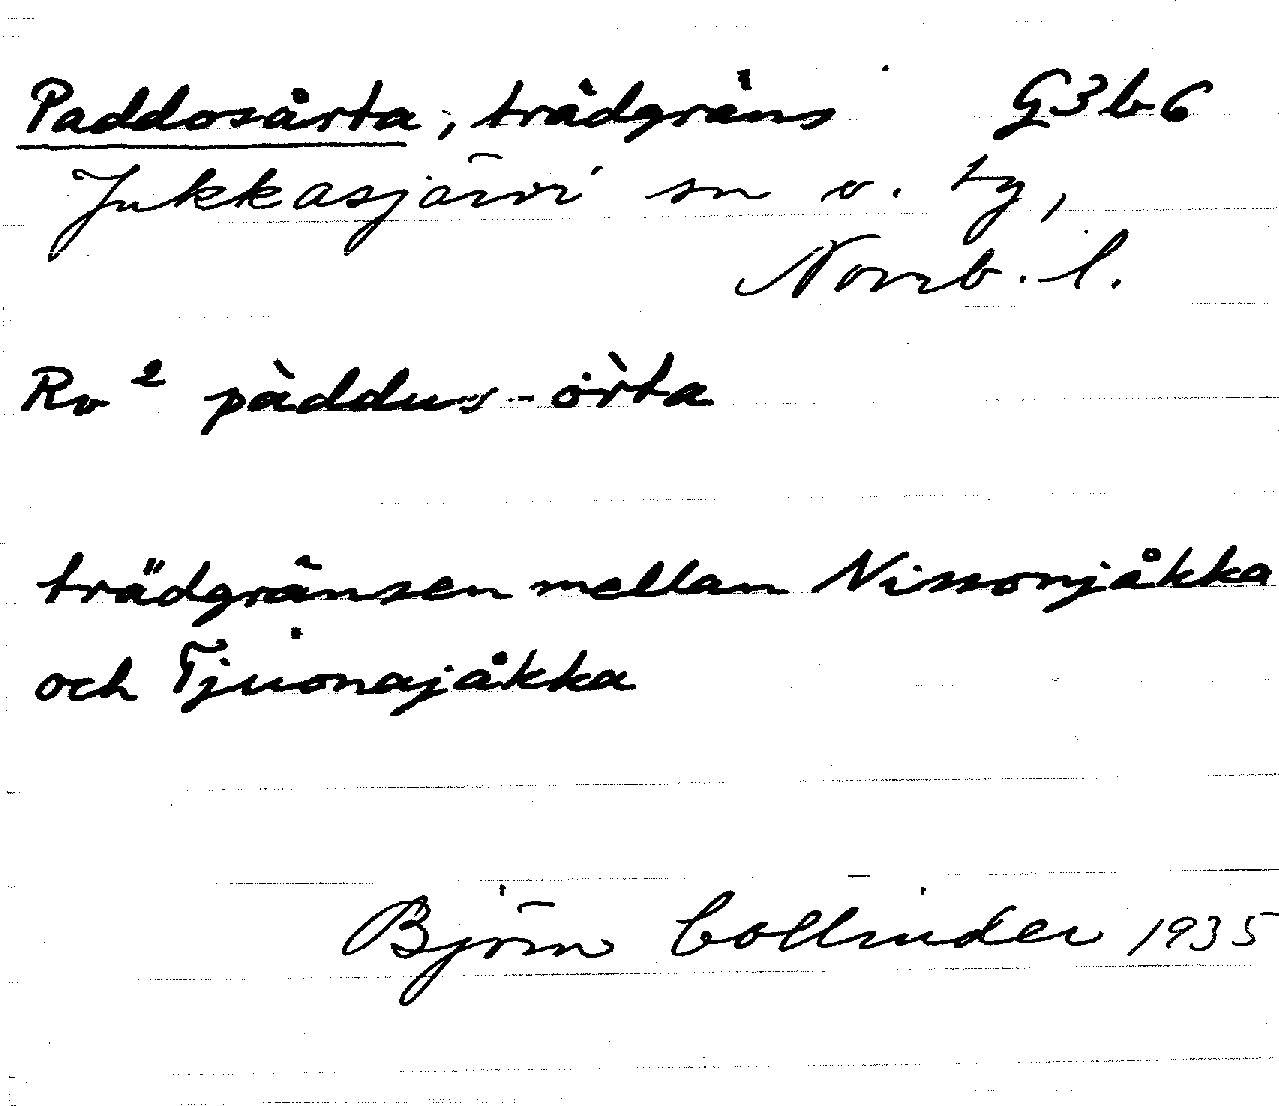 Paddosårta, trädgräns G3b6
Jukkasjärvi sn o. tg,
Norrb. l.
Rv² pàddus-òrta
trädgränsen mellan Nissonjåkka
och Tjuonajåkka
Björn Collinder 1935